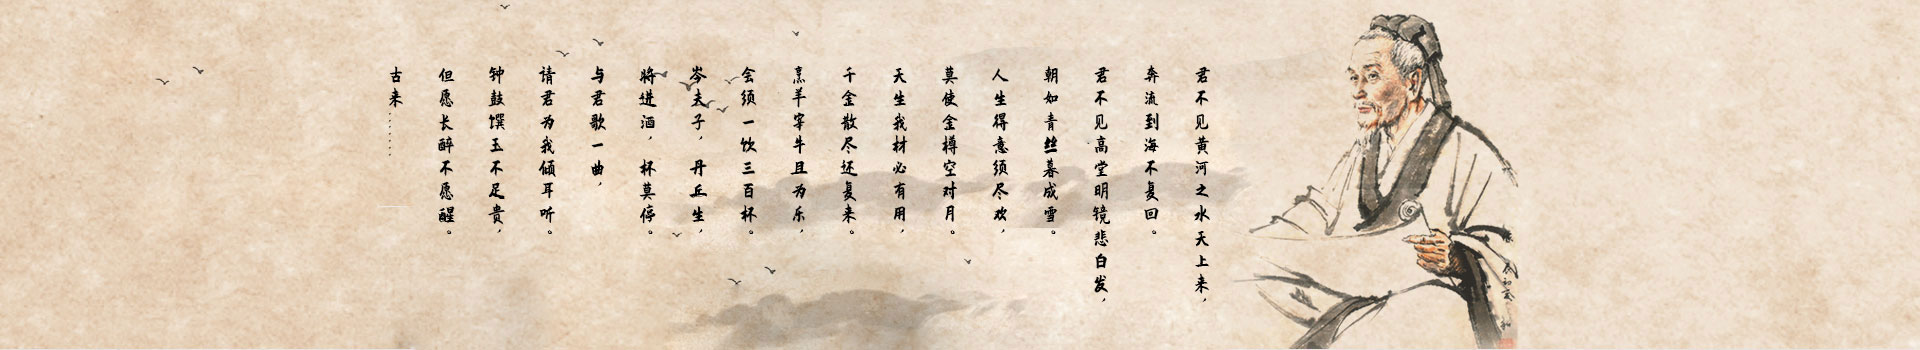 君不见黄河之水天上来，
奔流到海不复回。
君不见高堂明镜悲白发，
朝如青丝暮成雪。
人生得意须尽欢，
莫使金樽空对月。
天生我材必有用，
千金散尽还复来。
烹羊宰牛且为乐，
会须一饮三百杯。
岑夫子，丹丘生，
将进酒，杯莫停。
与君歌一曲，
请君为我倾耳听。
钟鼓馔玉不足贵，
但愿长醉不愿醒。
古来……